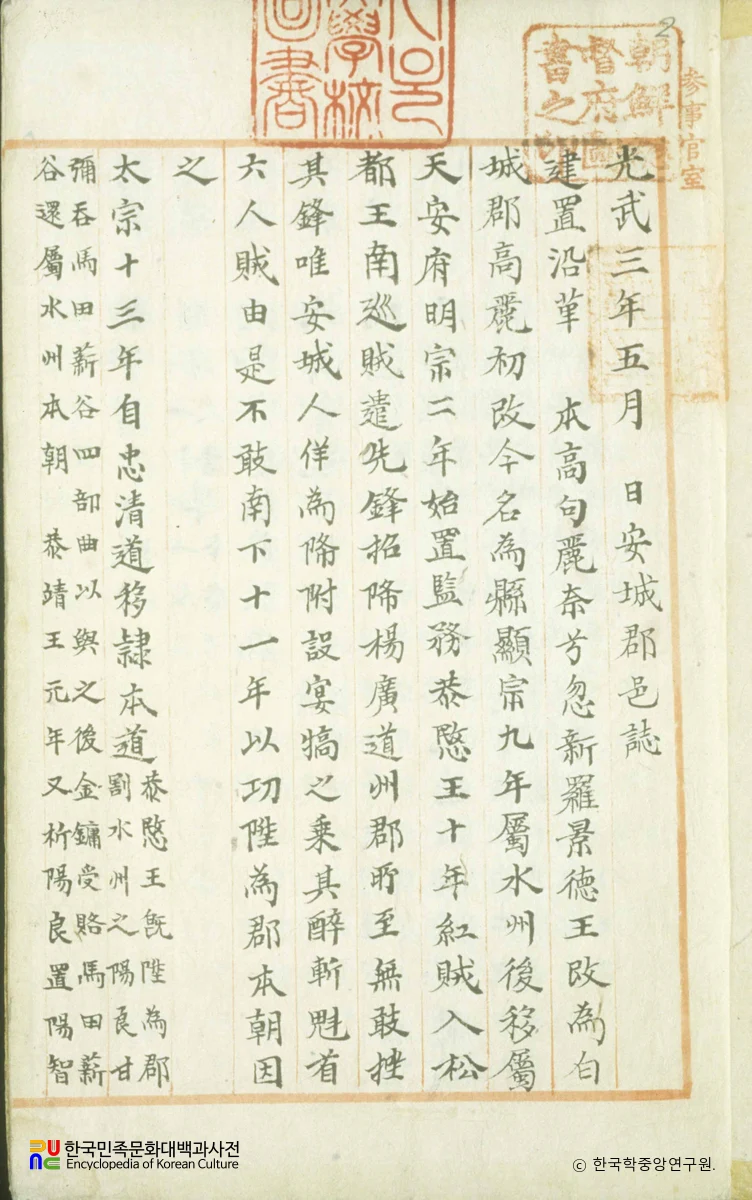 2
參事官室
光武三年五月 日安城郡邑誌
建置沿革 本高句麗奈兮忽新羅景德王改為白
城郡高麗初改今名為縣顯宗九年屬水州後移屬
天安府明宗二年始置監務恭愍王十年紅賊入松
都王南巡賊遣先鋒招降楊廣道州郡所至無敢挫
其鋒唯安城人佯為降附設宴犒之乘其醉斬魁首
六人賊由是不敢南下十一年以功陞為郡本朝因
之
太宗十三年自忠清道移隷本道
恭愍王旣陞為郡
割水州之陽良甘
彌吞馬田薪谷四部曲以與之後金鏞受賂馬田薪
谷還屬水州本朝 恭靖王元年又析陽良置陽智
한국민족문화대백과사전
Encyclopedia of Korean Culture
© 한국학중앙연구원.